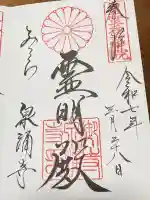 奉拝
令和七年
三月二十八日
霊明殿
みてら
泉涌寺